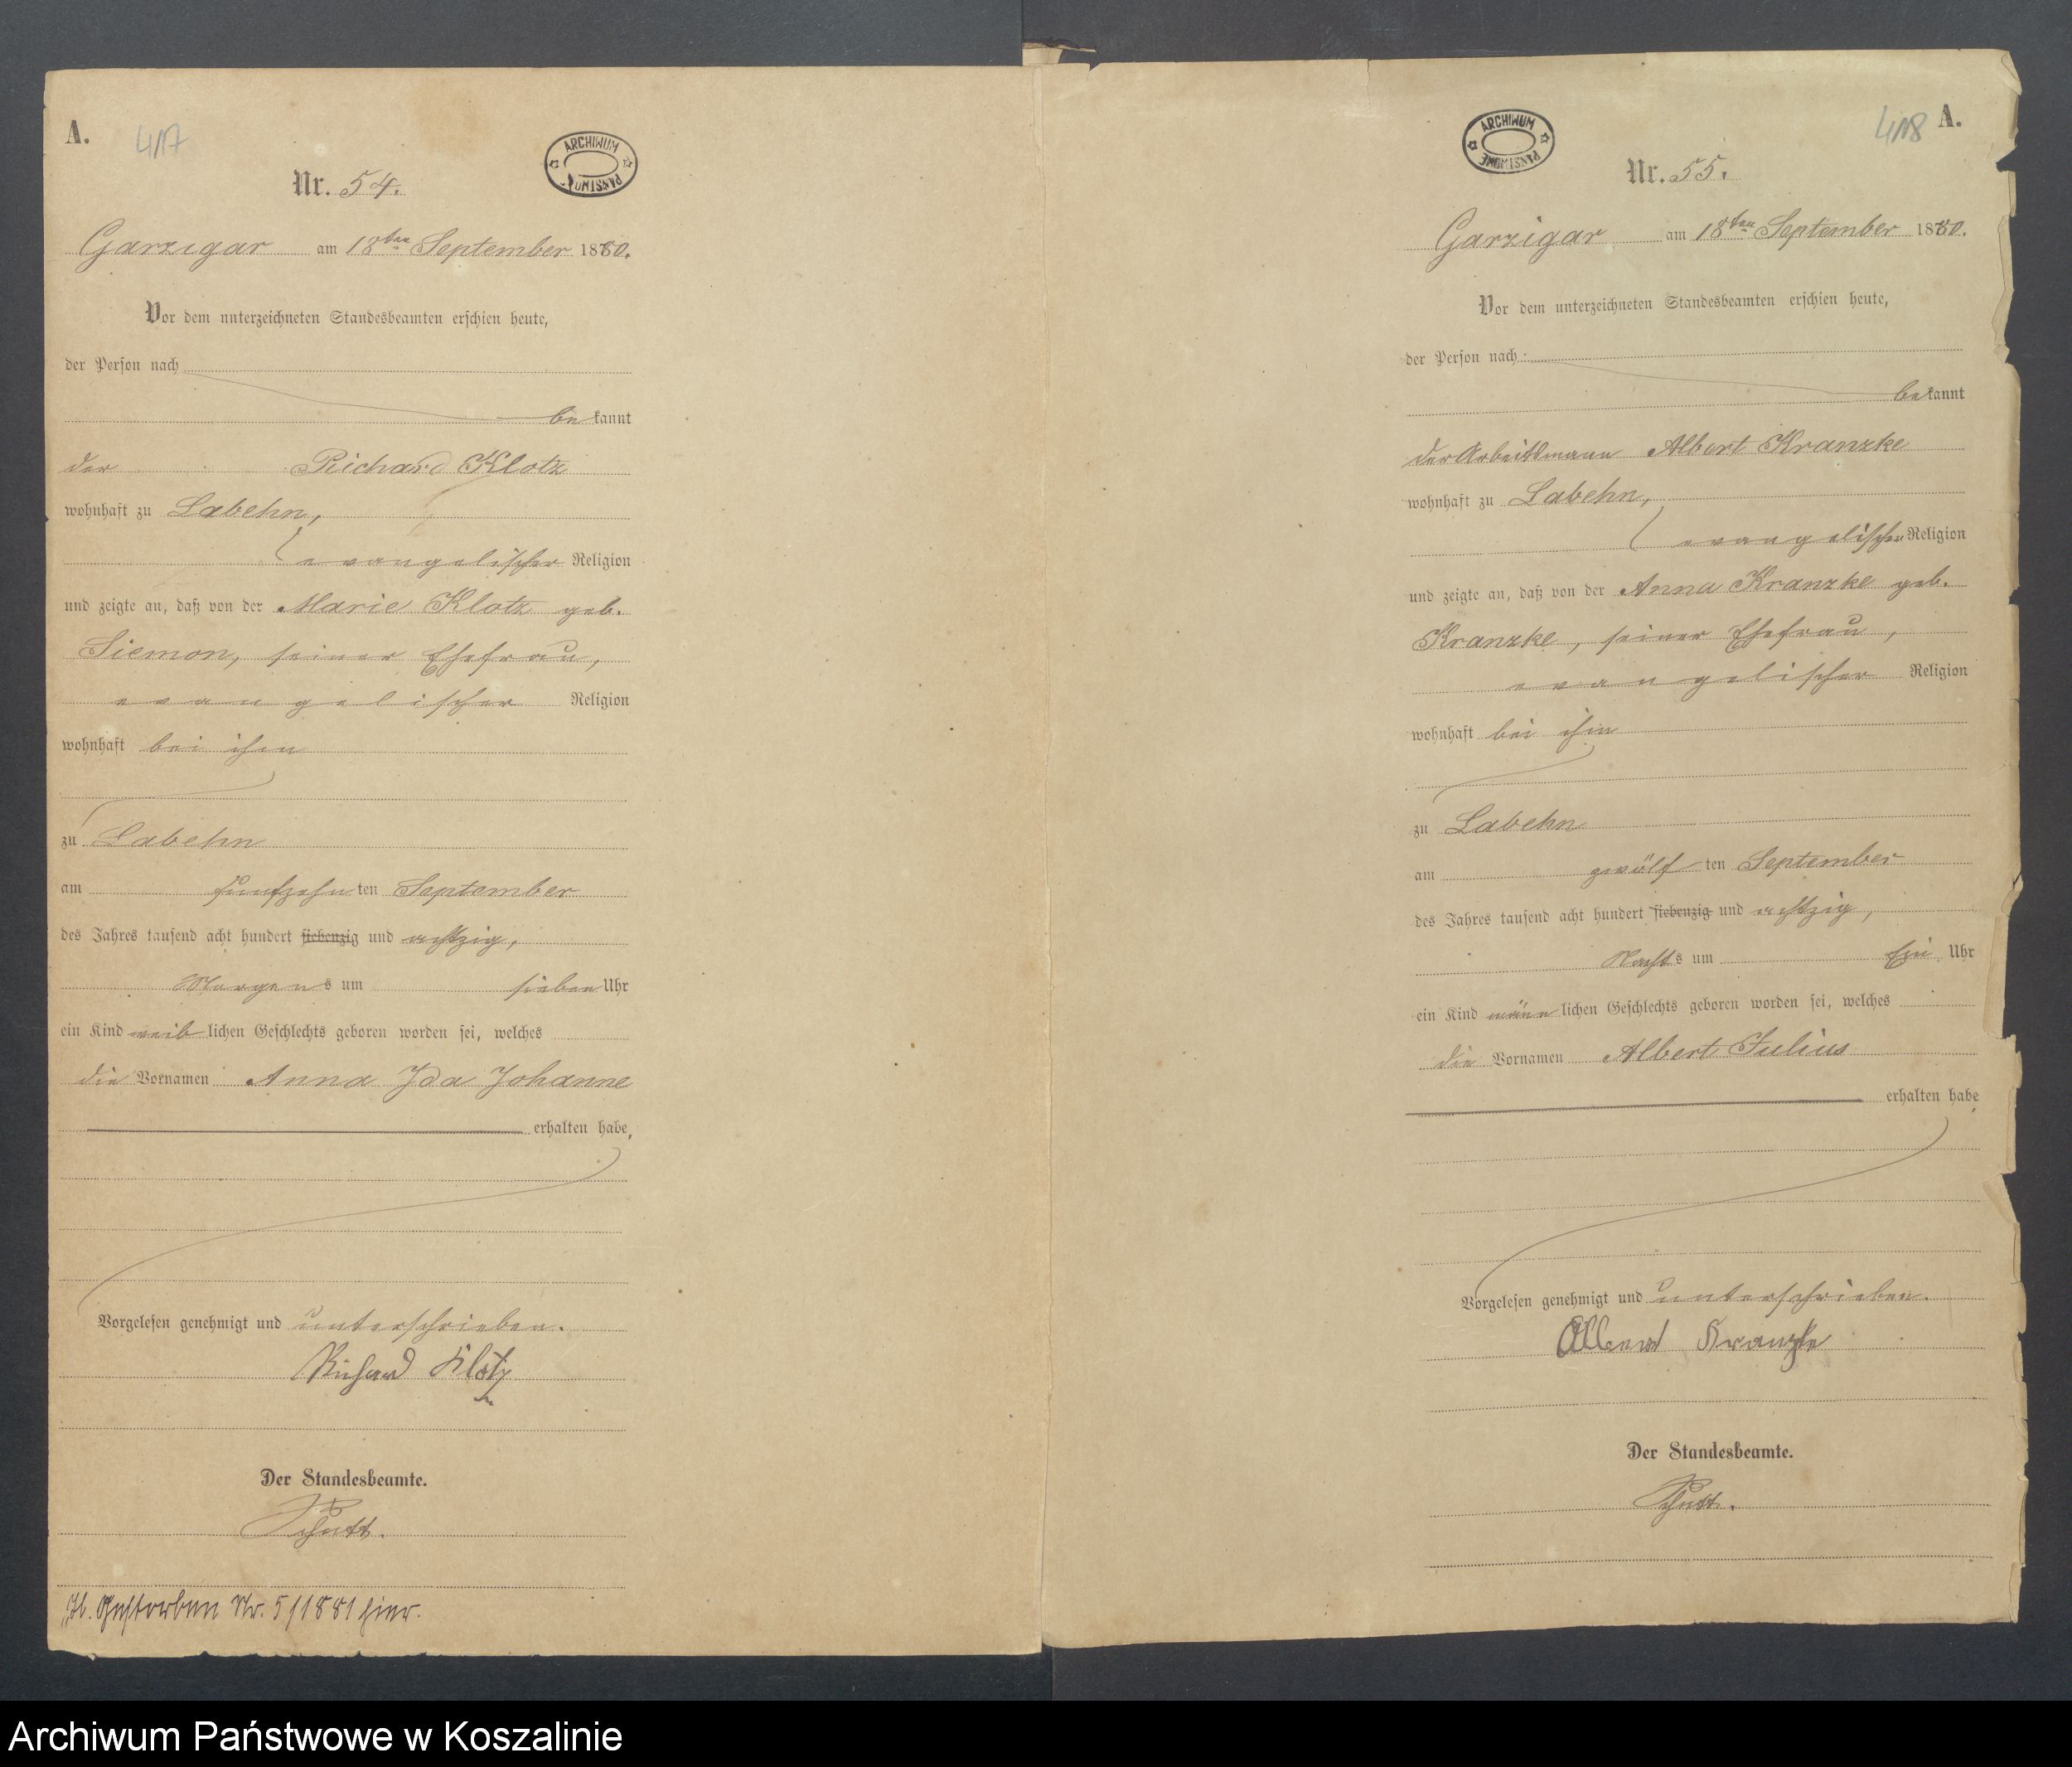 A.
417
ARCHIWUM PAŃSTWOWE
Nr. 54.
Garzigar am 18ten September 1880.
Vor dem unterzeichneten Standesbeamten erschien heute,
der Person nach
bekannt
der Richard Klotz
wohnhaft zu Labehn,
evangelischer Religion
und zeigte an, daß von der Marie Klotz geb.
Siemon, seiner Ehefrau,
evangelischer Religion
wohnhaft bei ihm
zu Labehn
am fünfzehnten September
des Jahres tausend acht hundert siebenzig und achtzig,
Morgens um sieben Uhr
ein Kind weiblichen Geschlechts geboren worden sei, welches
die Vornamen Anna Ida Johanne
erhalten habe,
Vorgelesen genehmigt und unterschrieben.
Richard Klotz
Der Standesbeamte.
Gestorben Nr. 5/1881 hier.
418 A.
ARCHIWUM PAŃSTWOWE
Nr. 55.
Garzigar am 18ten September 1880.
Vor dem unterzeichneten Standesbeamten erschien heute,
der Person nach
bekannt
der Arbeitsmann Albert Kranzke
wohnhaft zu Labehn,
evangelischer Religion
und zeigte an, daß von der Anna Kranzke geb.
Kranzke, seiner Ehefrau,
evangelischer Religion
wohnhaft bei ihm
zu Labehn
am zwölften September
des Jahres tausend acht hundert siebenzig und achtzig,
Nachts um Ein Uhr
ein Kind männlichen Geschlechts geboren worden sei, welches
die Vornamen Albert Julius
erhalten habe,
Vorgelesen genehmigt und unterschrieben.
Albert Kranzke
Der Standesbeamte.
Archiwum Państwowe w Koszalinie